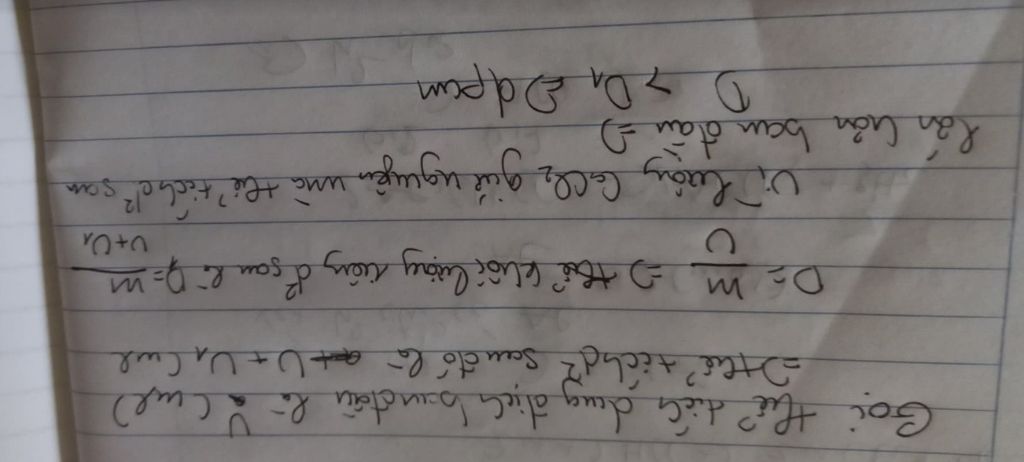 Gọi thể tích dung dịch ban đầu là V (ml)
=> thể tích d² sau đó là V + V₁ (ml
D = m/V => thì khối lượng riêng d² sau là D₁ = m/V+V₁
Vì lượng CaCl₂ giữ nguyên mà thể tích d² sau
lớn hơn ban đầu =>
D > D₁ => đpcm